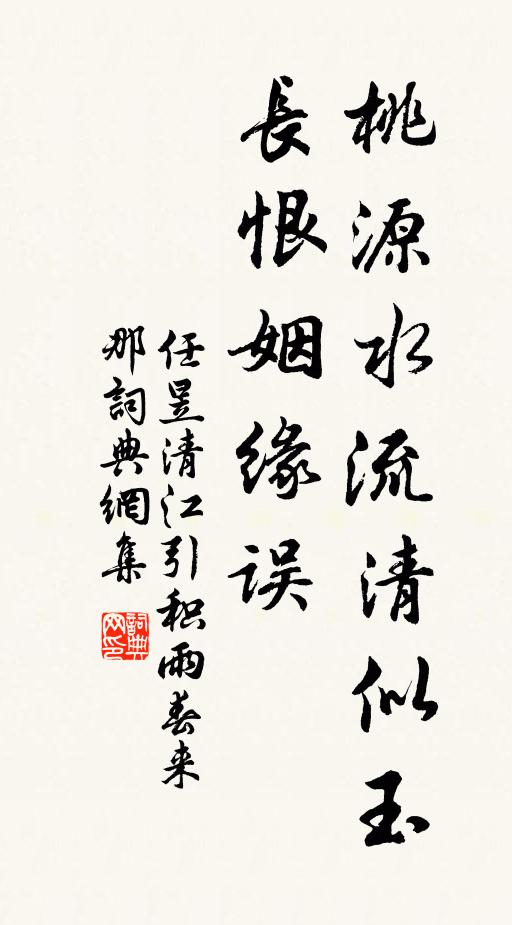 桃源水流清似玉
長恨姻缘误
任昱清江引积雨春来
那詞典網集
詞典网印